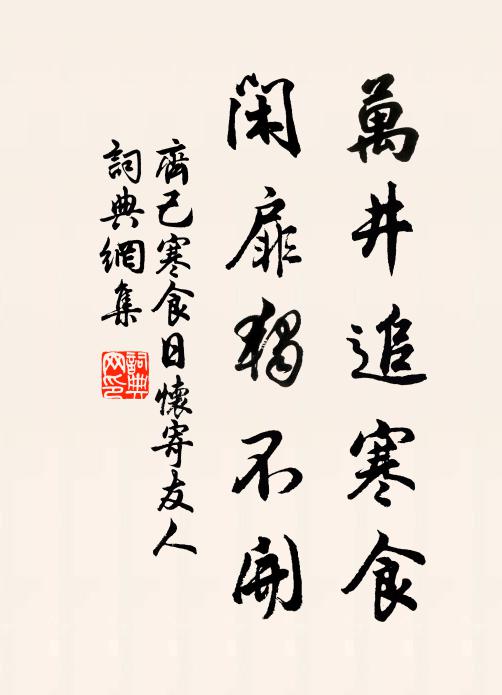 萬井追寒食
閑扉獨不開
齊己寒食日懷寄友人
詞典網集
詞典网印